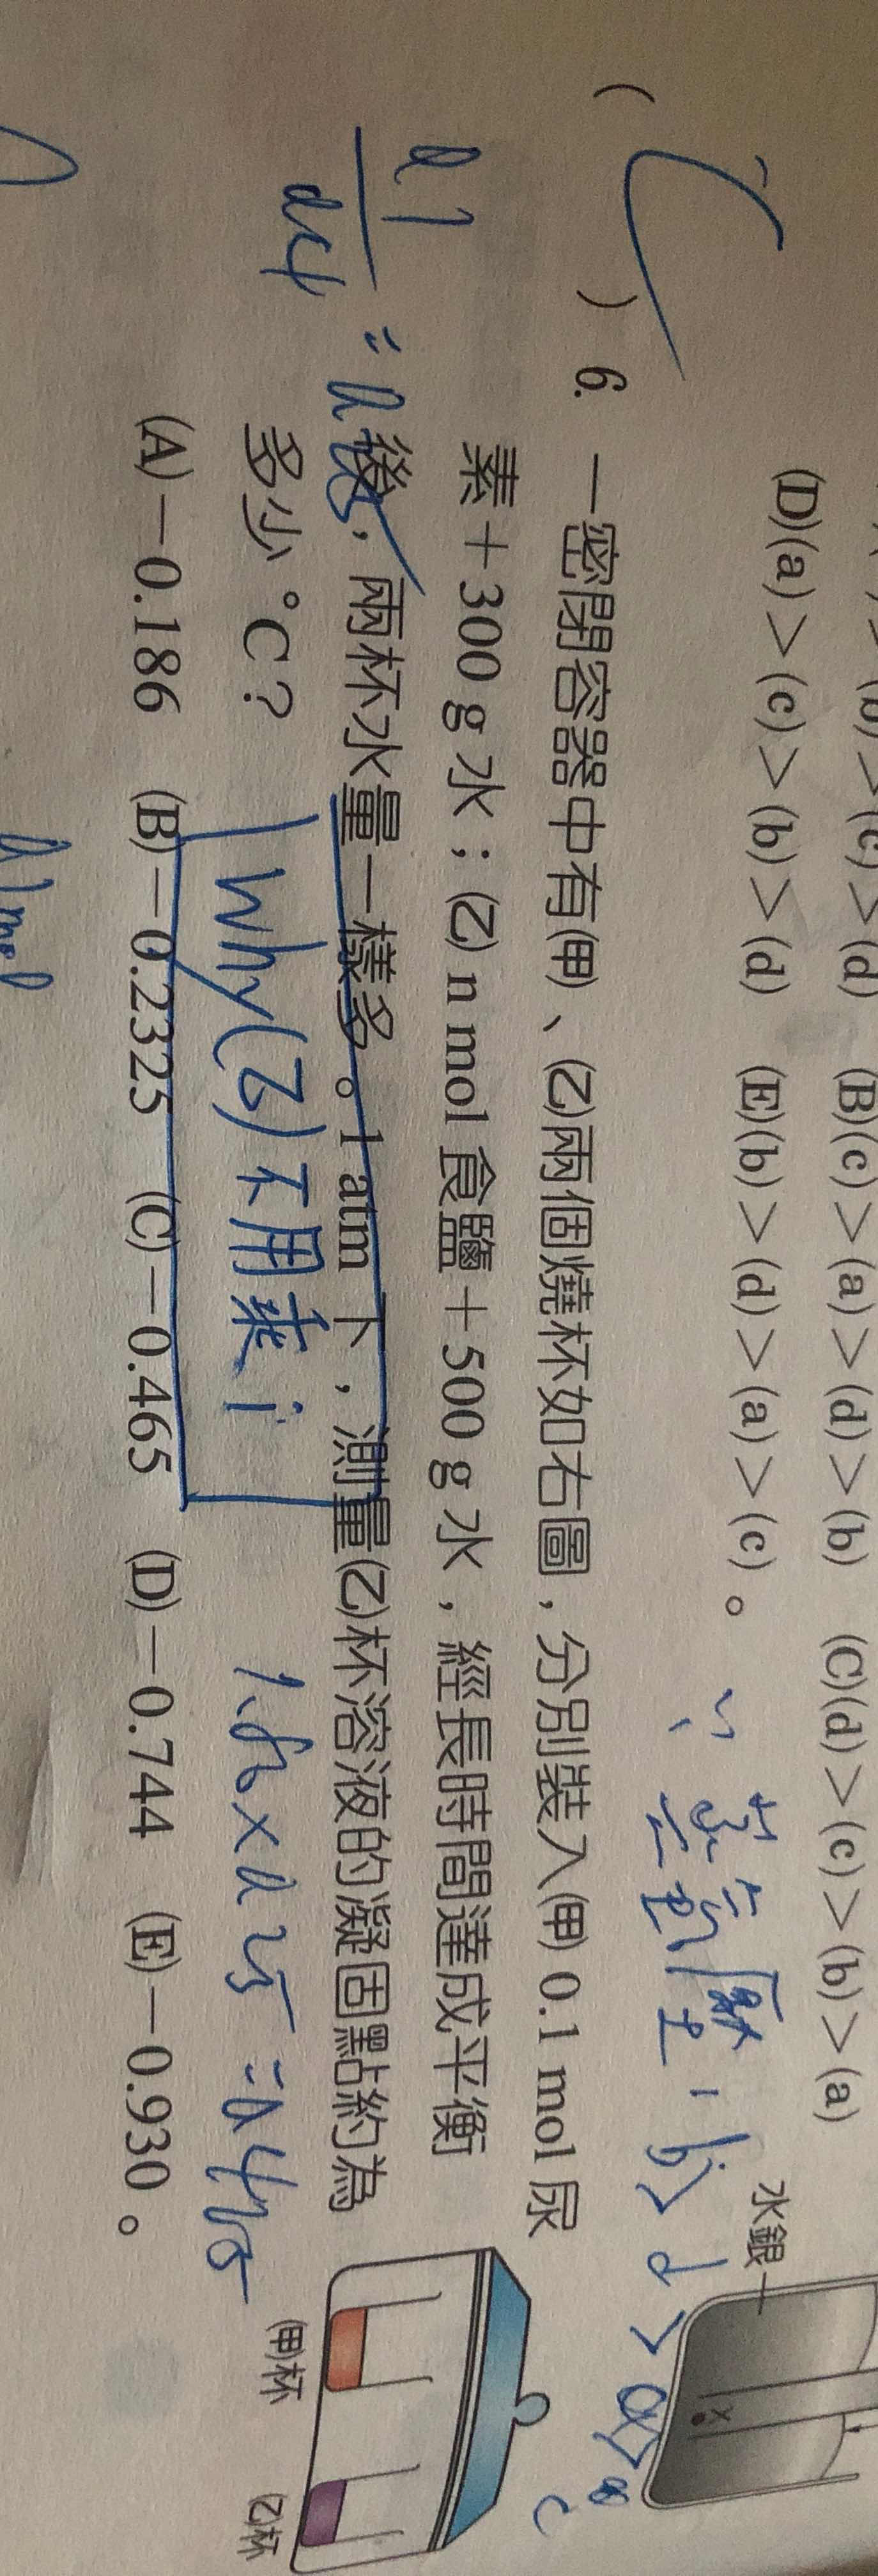 (b)>(c)>(d) (B)(c)>(a)>(d)>(b) (C)(d)>(c)>(b)>(a)
(D)(a)>(c)>(b)>(d) (E)(b)>(d)>(a)>(c)。
水銀
x
蒸氣壓:b>d>a>c
( C ) 6. 一密閉容器中有㈙、㈚兩個燒杯如右圖,分別裝入㈙ 0.1 mol 尿
素+300 g 水;㈚ n mol 食鹽+500 g 水,經長時間達成平衡
後,兩杯水量一樣多。1 atm 下,測量㈚杯溶液的凝固點約為
多少 °C?
0.1
0.4
Why(乙)不用乘 i
1.86×0.25=0.465
(A)-0.186 (B)-0.2325 (C)-0.465 (D)-0.744 (E)-0.930。
㈙杯
㈚杯
0.1mol